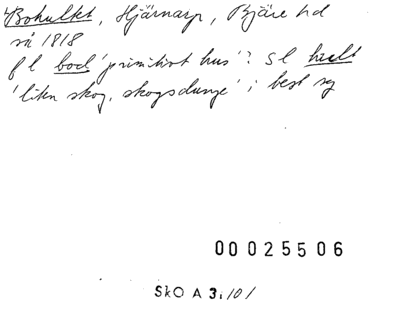 Bohultet, Hjärnarp, Bjäre hd
så 1818
f l bod 'primitivt hus'? s l hult
'liten skog, skogsdunge' i best sg
00025506
SkO A 3:101